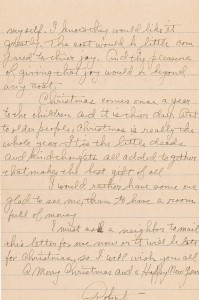 myself. I know they would like it
greatly. The cost would be little com
pared to their joy. And the pleasure
of giving that joy would be beyond
any cost.
Christmas comes once a year
to the children and it is their day. But
to older people, Christmas is really the
whole year. It is the little deeds
and kind thoughts all added together
that makes the best gift of all.
I would rather have some one
glad to see me, than to have a room
full of money.
I must ask a neighbor to mail
this letter for me now or it will be late
for Christmas, so I will wish you all
A Merry Christmas and a Happy New Year